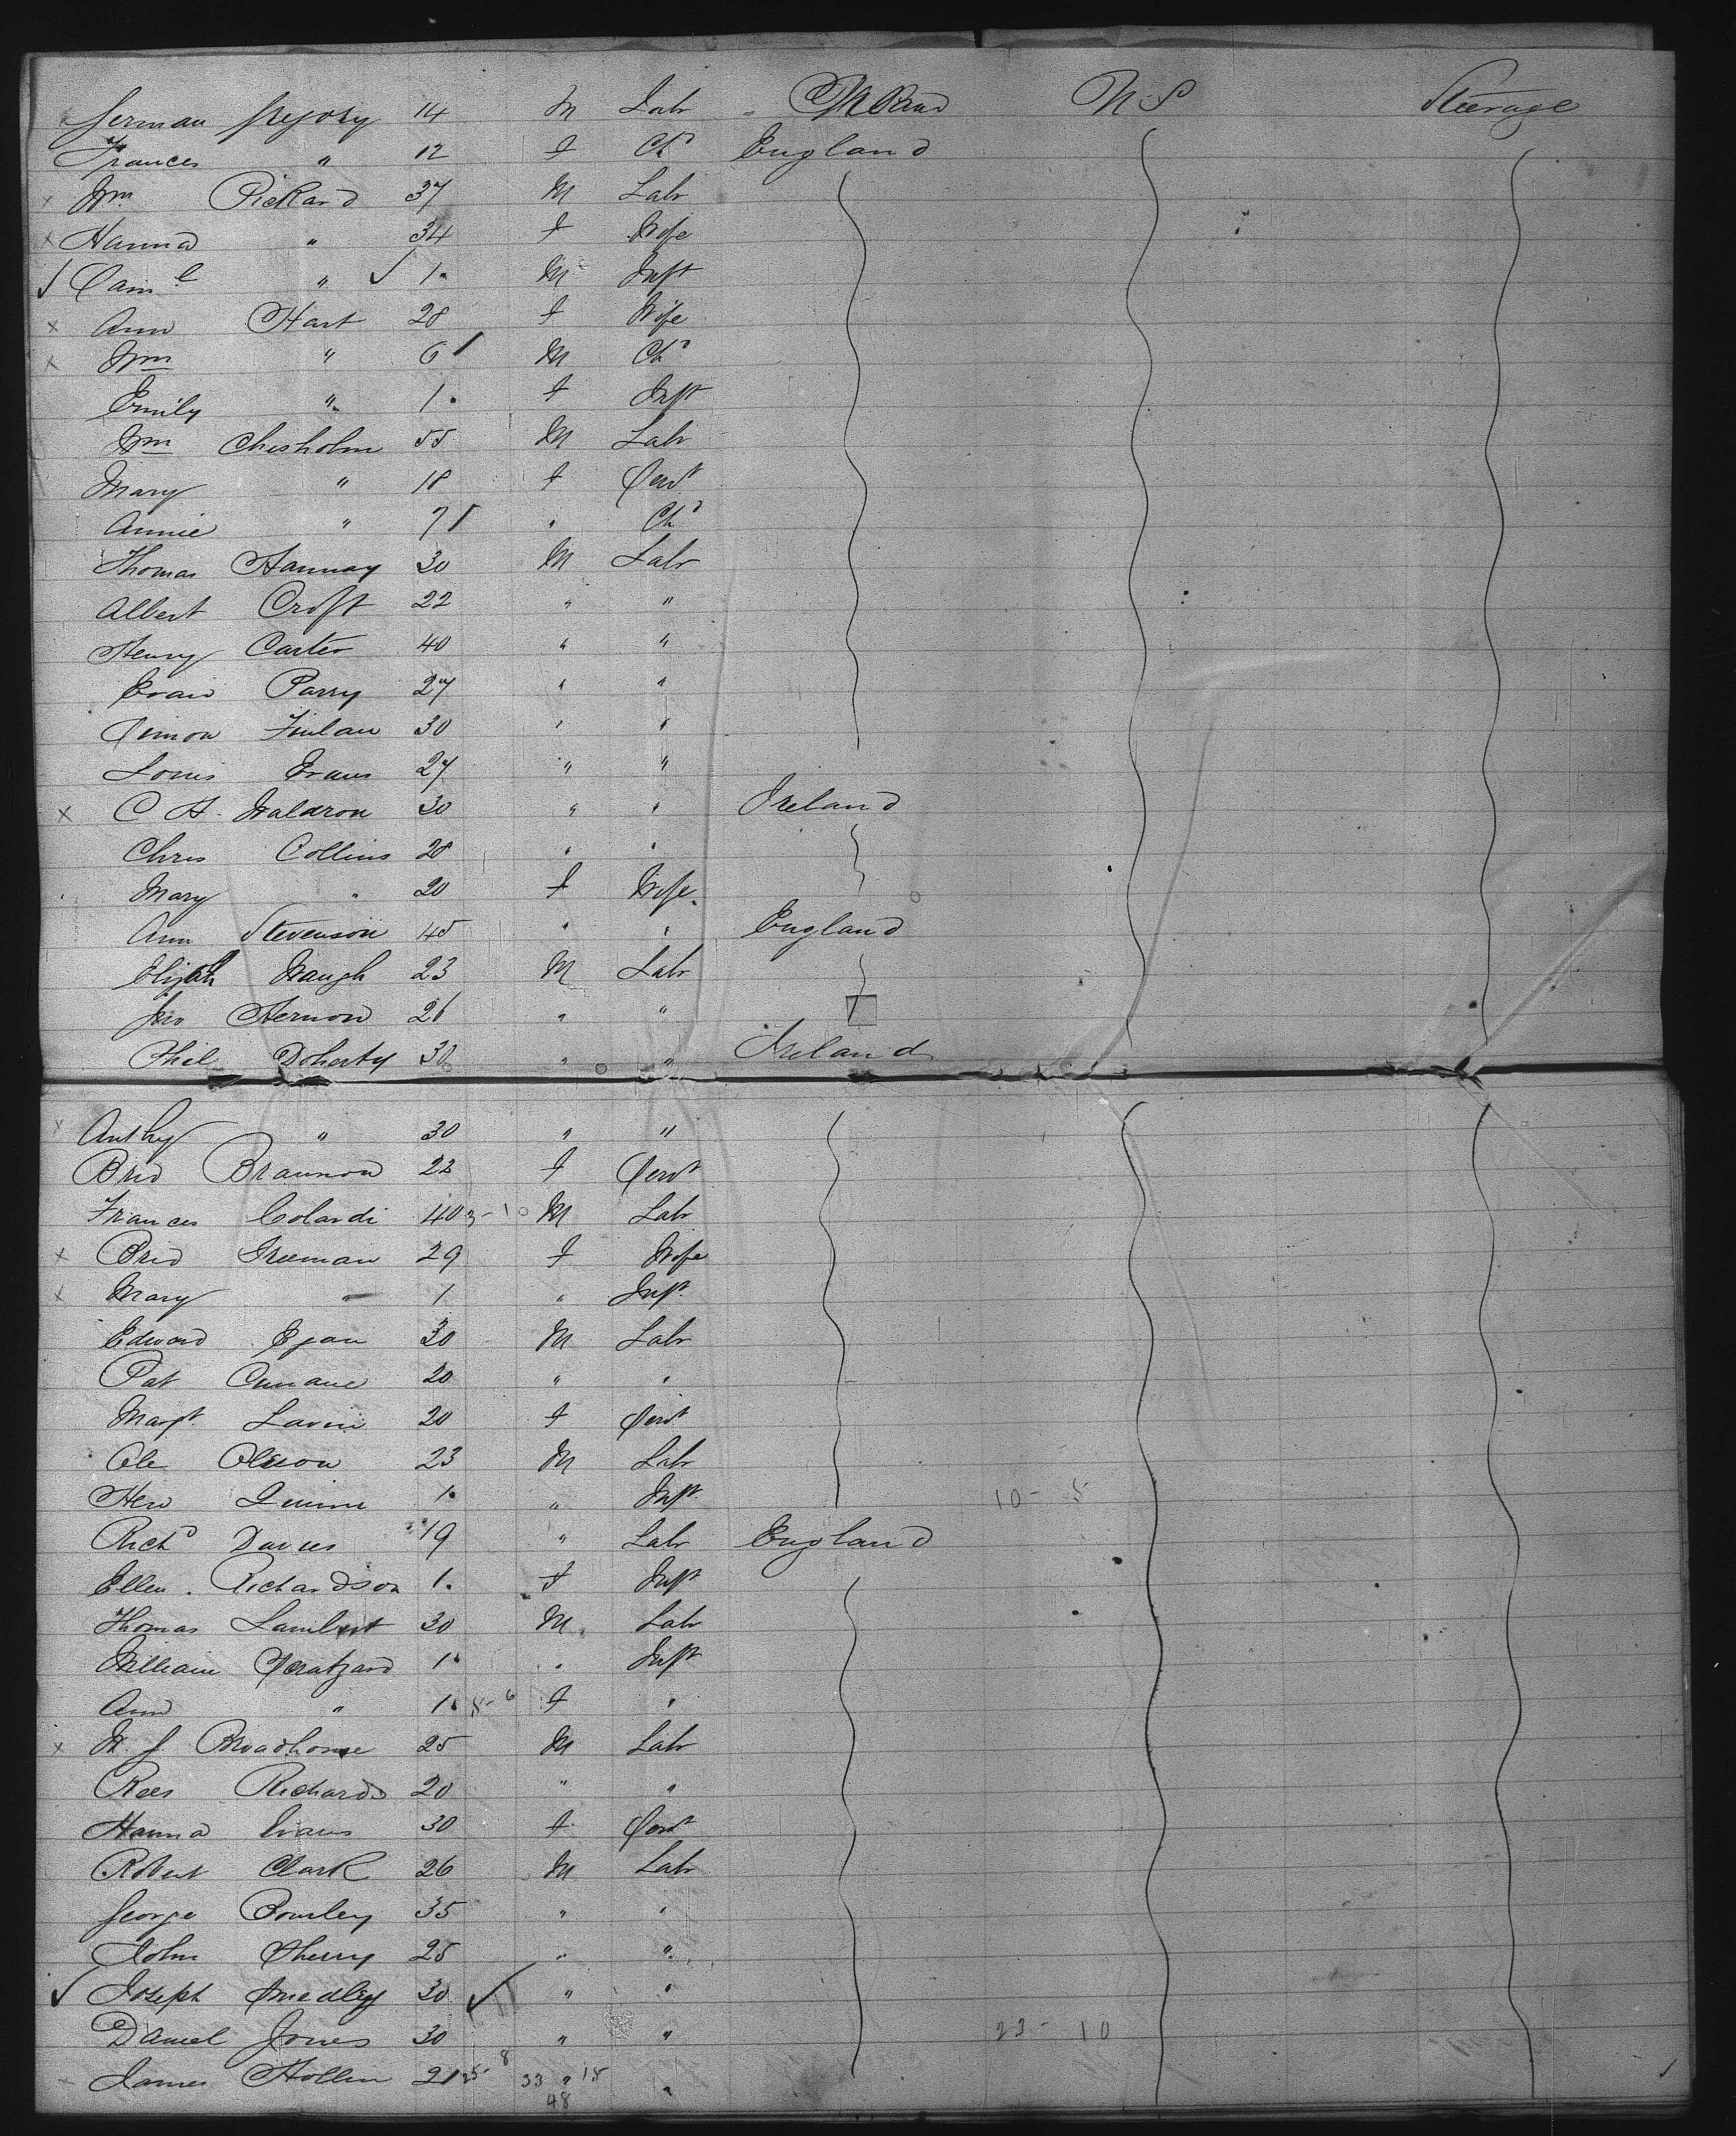 Herman Gregory 14 M Labr England U.S Steerage
Frances " 12 f Chd England
Wm Pickard 37 M Labr
Hanna " 34 f Wife
Saml " 1 M Inft
Ann Hart 28 f Wife
Wm " 6 M Chd
Emily " 1 f Inft
Wm Chisholm 55 M Labr
Mary " 18 f Servt
Annie " 7 " Chd
Thomas Hannay 30 M Labr
Albert Croft 22 " "
Henry Carter 40 " "
Evan Parry 27 " "
Simon Finlan 30 " "
Louis Evans 27 " "
C H. Waldron 30 " " Ireland
Chris Collins 28 " "
Mary " 20 f Wife
Ann Stevenson 45 " " England
Elijah Waugh 23 M Labr
Jno Hernon 26 " "
Phil Doherty 30 " " Ireland
Anthy " 30 " "
Brid Brannon 22 f Servt
Frances Colardi 40 3-10 M Labr
Brid Freeman 29 f Wife
Mary " 1 " Inft
Edward Egan 30 M Labr
Pat Cunane 20 " "
Margt Lavin 20 f Servt
Ole Oleson 23 M Labr
Hew Quinn 1 " Inft 10-5
Richd Davies 19 " Labr England
Ellen Richardson 1 f Inft
Thomas Lambert 30 M Labr
William 1 " Inft
Ann " 1 8-6 f "
W. J. Broadhouse 25 M Labr
Rees Richards 20 " "
Hanna Evans 30 f Servt
Robert Clark 26 M Labr
George Bourley 35 " "
John Sherry 25 " "
Joseph Smedley 30 " "
Daniel Jones 30 " " 23-10
James Hollin 21 25-8 33 " 15 "
48